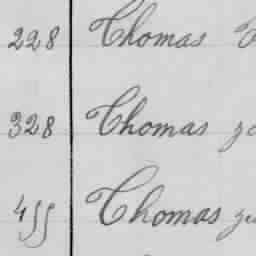 228 Thomas
328 Thomas
455 Thomas